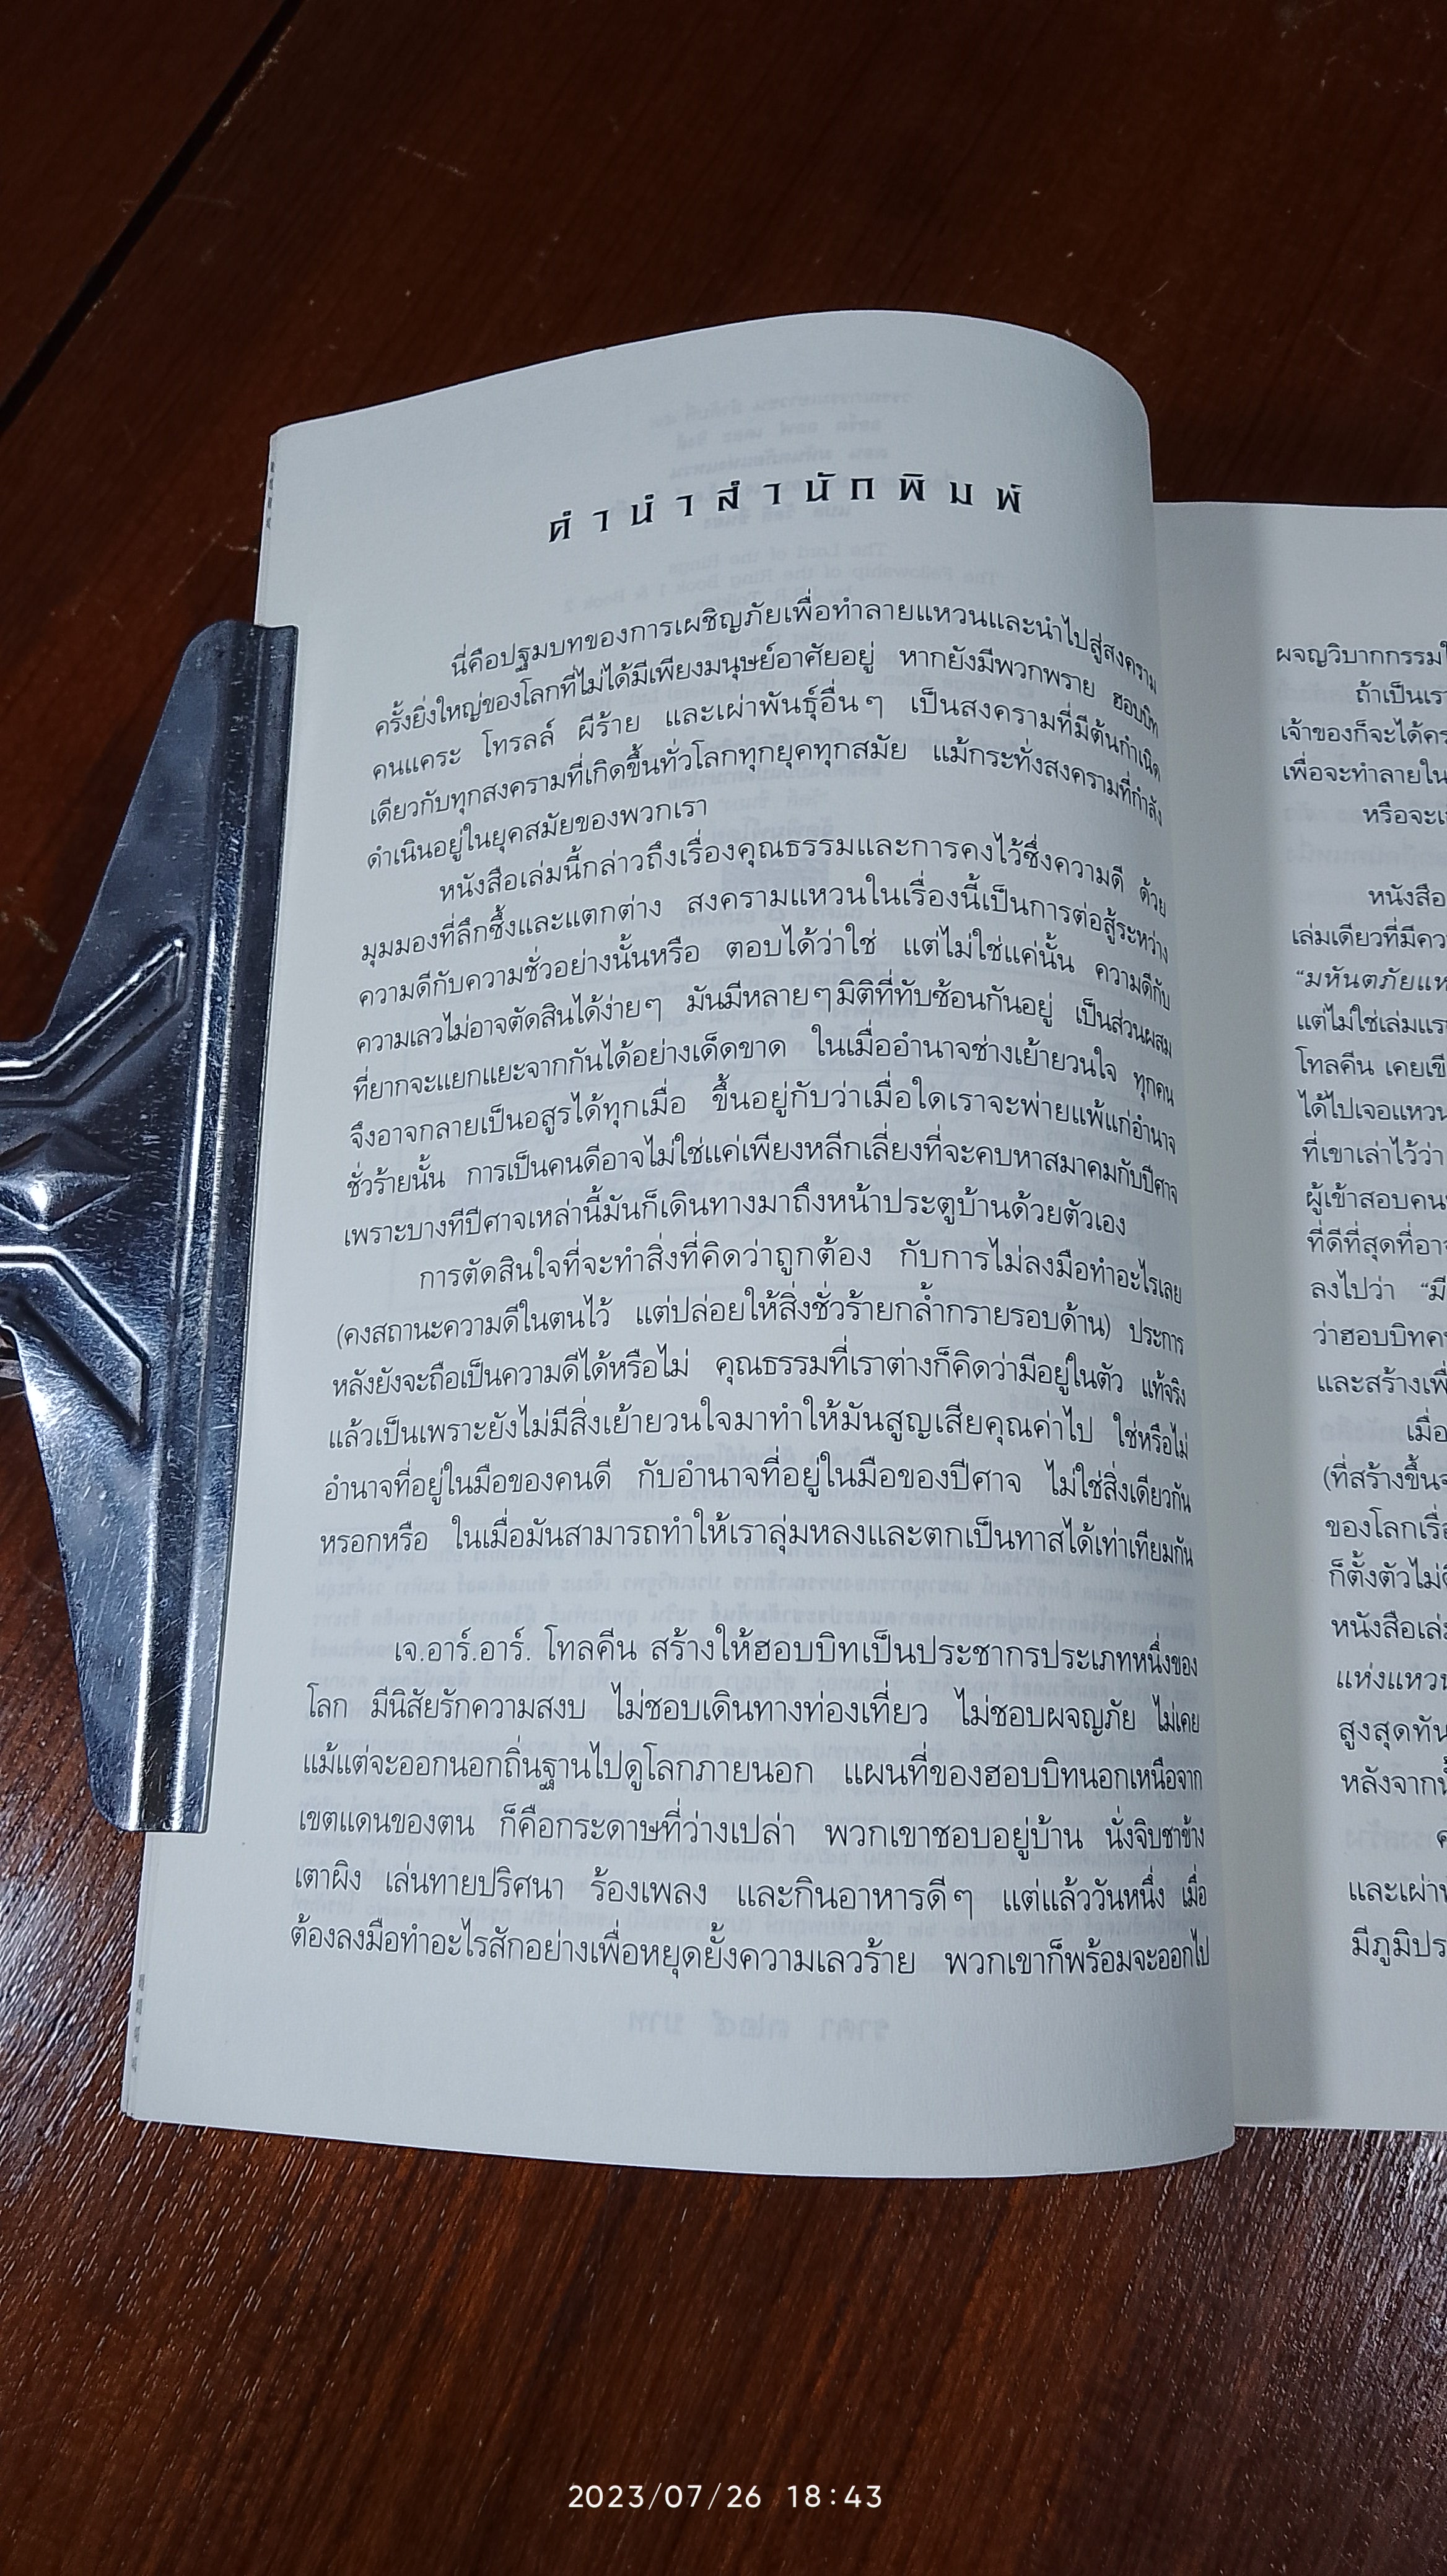 คำนำสำนักพิมพ์
นี่คือปฐมบทของการเผชิญภัยเพื่อทำลายแหวนและนำไปสู่สงคราม
ครั้งยิ่งใหญ่ของโลกที่ไม่ได้มีเพียงมนุษย์อาศัยอยู่ หากยังมีพวกพราย ฮอบบิท
คนแคระ โทรลล์ ผีร้าย และเผ่าพันธุ์อื่นๆ เป็นสงครามที่มีต้นกำเนิด
เดียวกับทุกสงครามที่เกิดขึ้นทั่วโลกทุกยุคทุกสมัย แม้กระทั่งสงครามที่กำลัง
ดำเนินอยู่ในยุคสมัยของพวกเรา
หนังสือเล่มนี้กล่าวถึงเรื่องคุณธรรมและการคงไว้ซึ่งความดี ด้วย
มุมมองที่ลึกซึ้งและแตกต่าง สงครามแหวนในเรื่องนี้เป็นการต่อสู้ระหว่าง
ความดีกับความชั่วอย่างนั้นหรือ ตอบได้ว่าใช่ แต่ไม่ใช่แค่นั้น ความดีกับ
ความเลวไม่อาจตัดสินได้ง่ายๆ มันมีหลายๆมิติที่ทับซ้อนกันอยู่ เป็นส่วนผสม
ที่ยากจะแยกแยะจากกันได้อย่างเด็ดขาด ในเมื่ออำนาจช่างเย้ายวนใจ ทุกคน
จึงอาจกลายเป็นอสูรได้ทุกเมื่อ ขึ้นอยู่กับว่าเมื่อใดเราจะพ่ายแพ้แก่อำนาจ
ชั่วร้ายนั้น การเป็นคนดีอาจไม่ใช่แค่เพียงหลีกเลี่ยงที่จะคบหาสมาคมกับปีศาจ
เพราะบางทีปีศาจเหล่านี้มันก็เดินทางมาถึงหน้าประตูบ้านด้วยตัวเอง
การตัดสินใจที่จะทำสิ่งที่คิดว่าถูกต้อง กับการไม่ลงมือทำอะไรเลย
(คงสถานะความดีในตนไว้ แต่ปล่อยให้สิ่งชั่วร้ายกล้ำกรายรอบด้าน) ประการ
หลังยังจะถือเป็นความดีได้หรือไม่ คุณธรรมที่เราต่างก็คิดว่ามีอยู่ในตัว แท้จริง
แล้วเป็นเพราะยังไม่มีสิ่งเย้ายวนใจมาทำให้มันสูญเสียคุณค่าไป ใช่หรือไม่
อำนาจที่อยู่ในมือของคนดี กับอำนาจที่อยู่ในมือของปีศาจ ไม่ใช่สิ่งเดียวกัน
หรอกหรือ ในเมื่อมันสามารถทำให้เราลุ่มหลงและตกเป็นทาสได้เท่าเทียมกัน
เจ.อาร์.อาร์. โทลคีน สร้างให้ฮอบบิทเป็นประชากรประเภทหนึ่งของ
โลก มีนิสัยรักความสงบ ไม่ชอบเดินทางท่องเที่ยว ไม่ชอบผจญภัย ไม่เคย
แม้แต่จะออกนอกถิ่นฐานไปดูโลกภายนอก แผนที่ของฮอบบิทนอกเหนือจาก
เขตแดนของตน ก็คือกระดาษที่ว่างเปล่า พวกเขาชอบอยู่บ้าน นั่งจิบชาข้าง
เตาผิง เล่นทายปริศนา ร้องเพลง และกินอาหารดีๆ แต่แล้ววันหนึ่ง เมื่อ
ต้องลงมือทำอะไรสักอย่างเพื่อหยุดยั้งความเลวร้าย พวกเขาก็พร้อมจะออกไป
ผจญวิบากกรรม
ถ้าเป็นเรา
เจ้าของก็จะได้
เพื่อจะทำลายใน
หรือจะ
หนังสือ
เล่มเดียวที่มี
“มหันตภัยแห
แต่ไม่ใช่เล่มแร
โทลคีน เคย
ได้ไปเจอแหวน
ที่เขาเล่าไว้ว่า
ผู้เข้าสอบ
ที่ดีที่สุดที่
ลงไปว่า “มี
ว่าฮอบบิท
และสร้าง
เมื่อ
(ที่สร้างขึ้น
ของโลก
ก็ตั้งตัวไม่
หนังสือ
แห่งแหวน
สูงสุด
หลังจาก
และเผ่า
มีภูมิ
2023/07/26 18:43